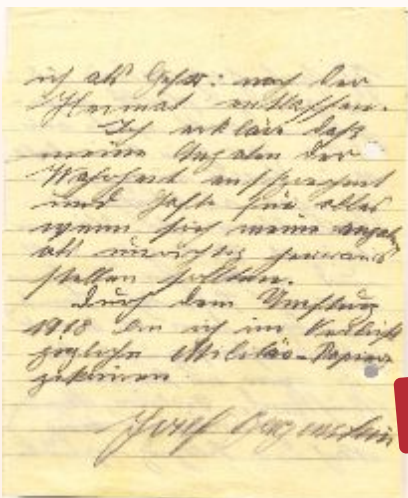 ich als Gefr: nach der
Heimat entlassen.
Ich erkläre daß
meine Angaben der
Wahrheit entsprechent
und hafte für alles
wenn sich meine angaben
als unrichtig heraus
stellen sollten.
Durch dem Umsturz
1918 bin ich im Verlust
jegliche Militär-Papiere
Josef